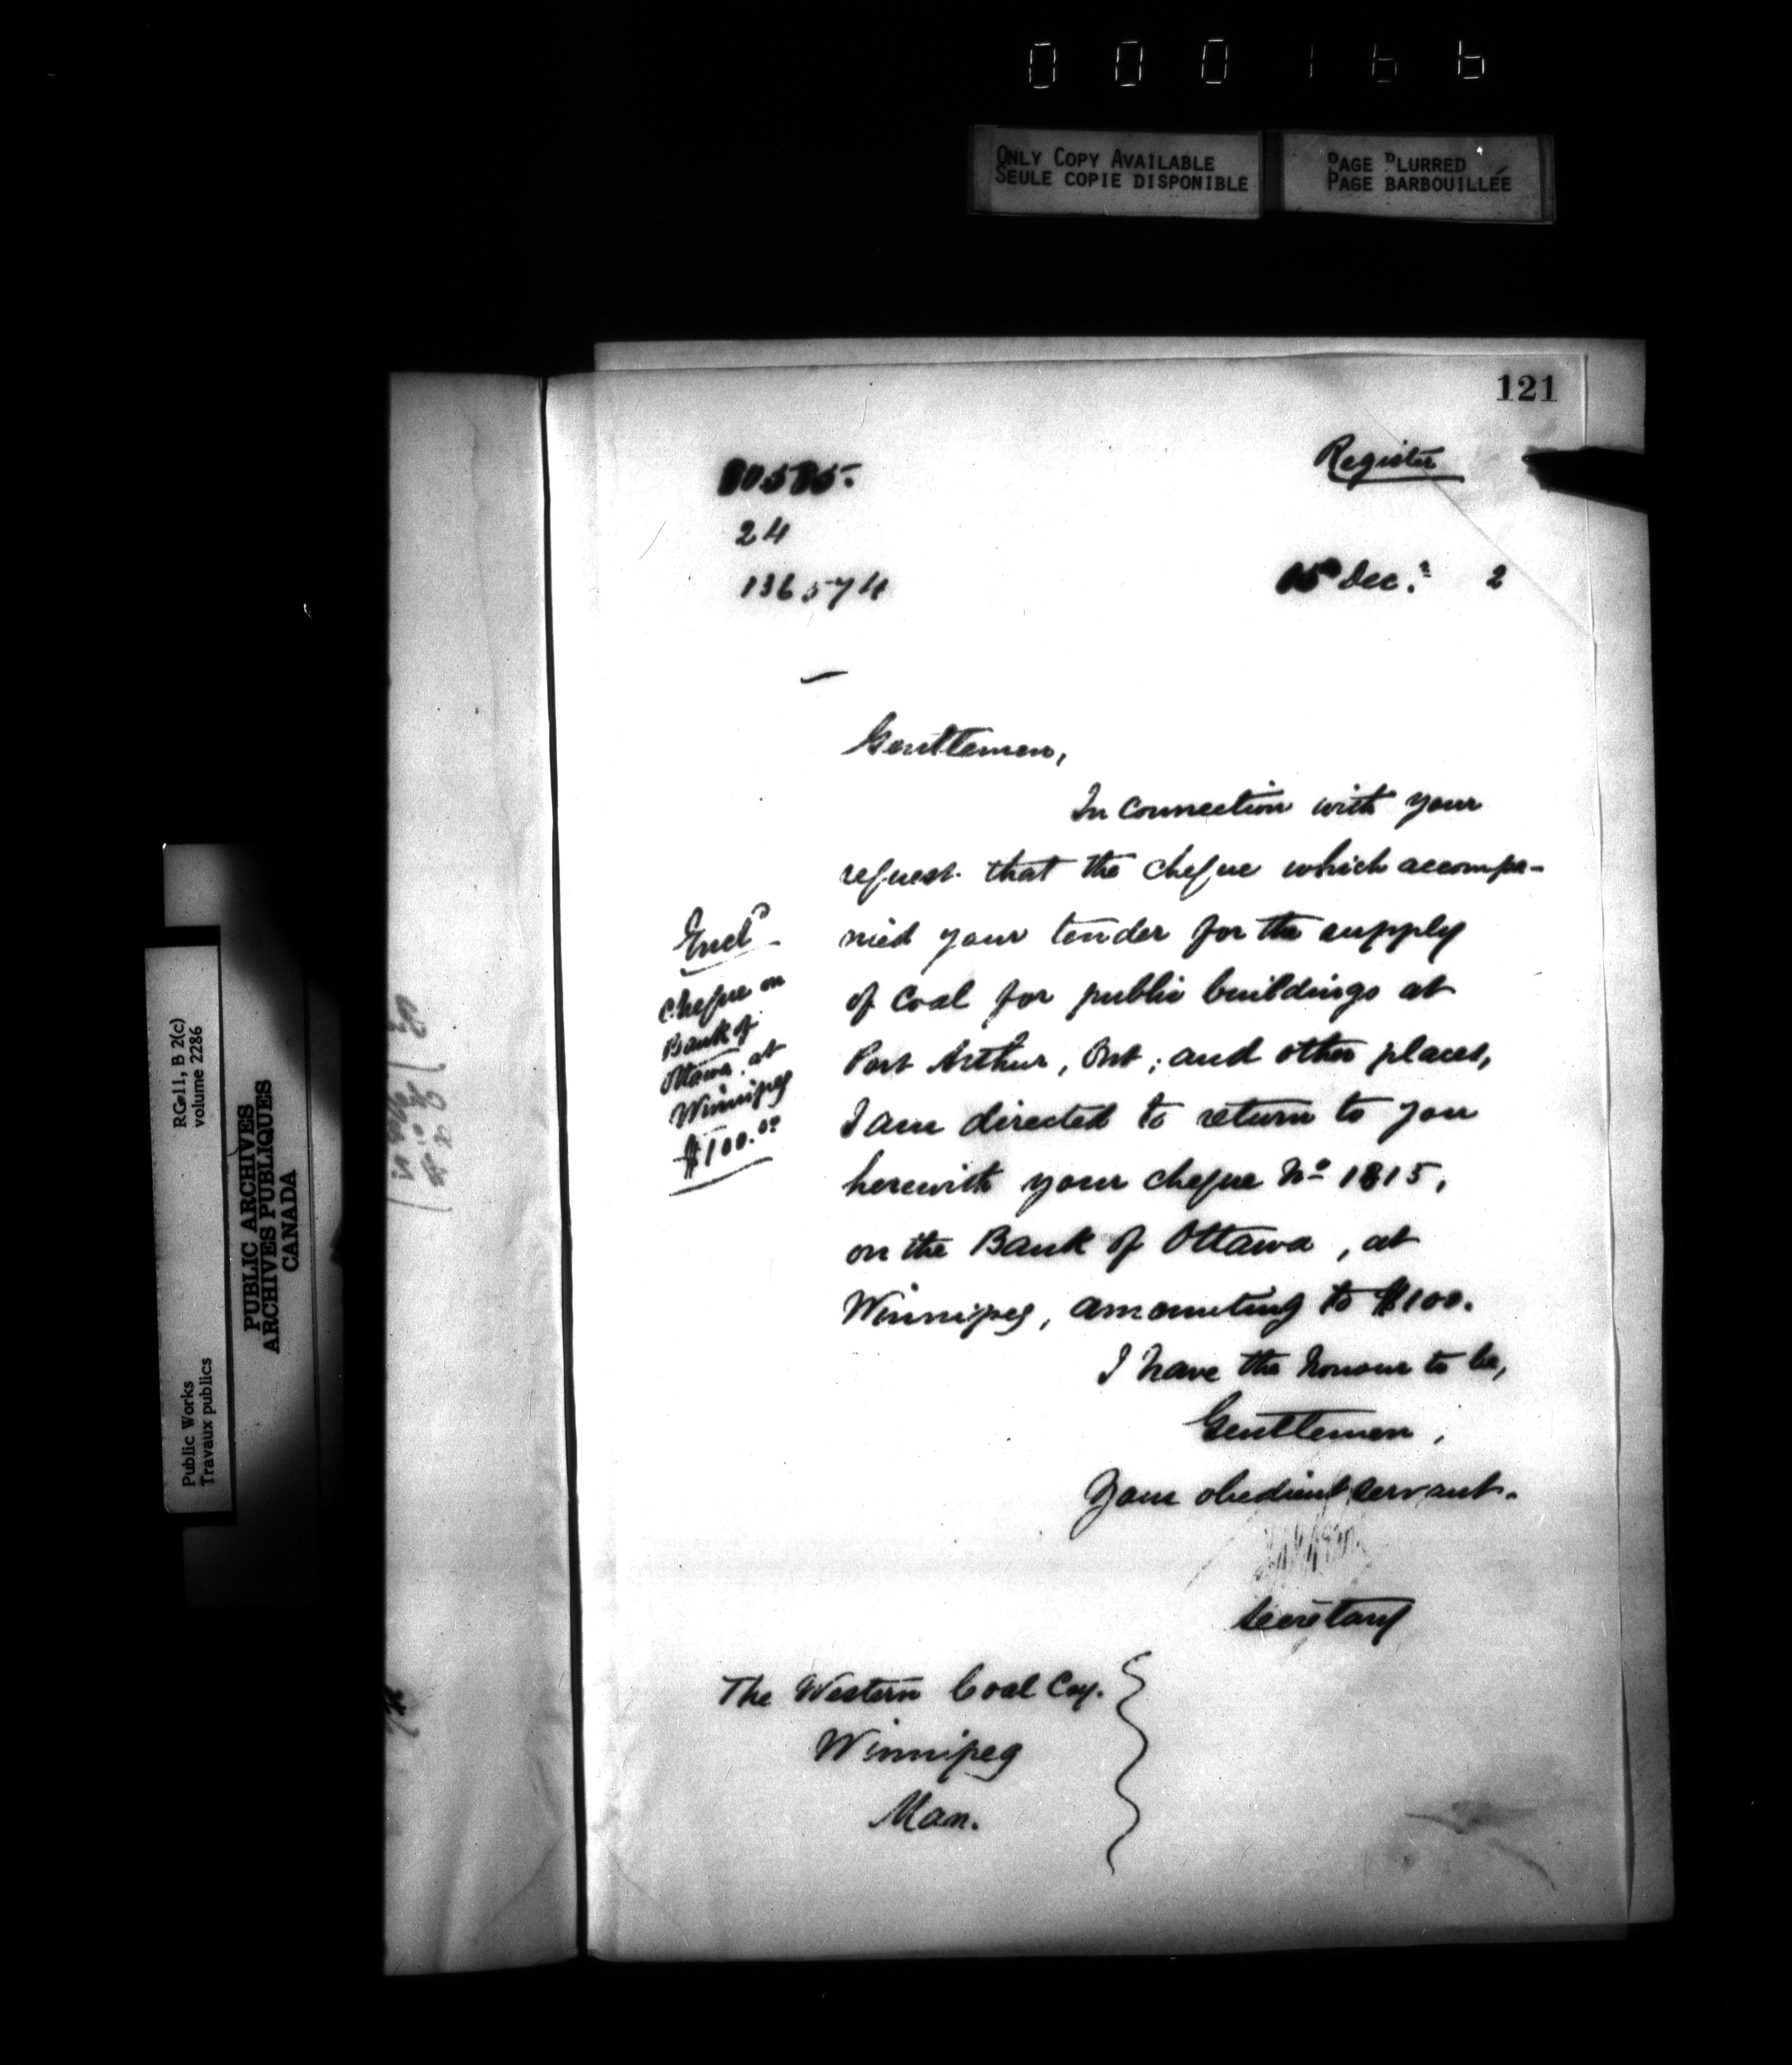 000166
ONLY COPY AVAILABLE
SEULE COPIE DISPONIBLE
PAGE BLURRED
PAGE BARBOUILLÉE
121
Register
80585.
24
136574
15 Dec.r 2
Gentlemen,
In connection with your
request that the cheque which accompa-
nied your tender for the supply
of Coal for public buildings at
Port Arthur, Ont; and other places,
I am directed to return to you
herewith your cheque No 1815,
on the Bank of Ottawa, at
Winnipeg, amounting to $100.
I have the honour to be,
Gentlemen,
Your obedient servant.
Secretary
Encl
cheque on
Bank of
Ottawa, at
Winnipeg
$100.00
The Western Coal Coy.
Winnipeg
Man.
RG 11, B 2(c)
volume 2286
Public Works
Travaux publics
PUBLIC ARCHIVES
ARCHIVES PUBLIQUES
CANADA